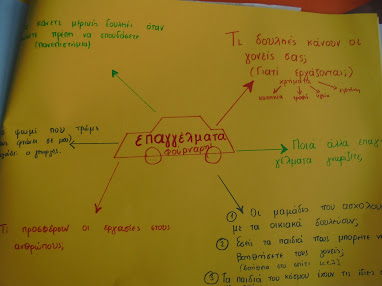 κάνετε μερικές δουλειές όταν
πρέπει να σπουδάσετε;
(Πανεπιστήμιο)
Τι δουλειές κάνουν οι
γονείς σας;
(Γιατί εργάζονται;)
χρήματα
κατοικία τροφή υγεία
επαγγέλματα
φούρναρης
ψωμί που τρώμε
φτάσει σε μας
ο γεωργός.
Ποιά άλλα επαγ
γέλματα γνωρίζετε;
Τι προσφέρουν οι εργασίες στους
ανθρώπους;
① Οι μαμάδες που ασχολού
με τα οικιακά δουλεύουν;
② Εσείς τα παιδιά πως μπορείτε να
βοηθήσετε τους γονείς;
(βοήθεια στο σπίτι κ.τ.λ)
③ Τα παιδιά του κόσμου έχουν τις ίδιες